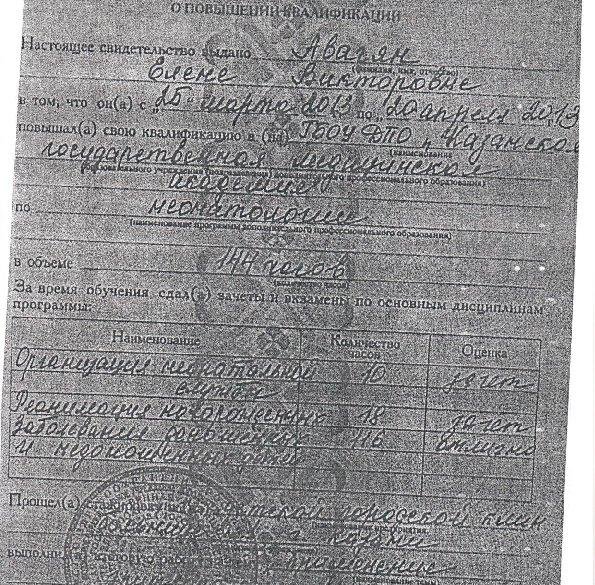 О ПОВЫШЕНИИ КВАЛИФИКАЦИИ
Настоящее свидетельство выдано Авагян
(фамилия, имя, отчество)
Елене Викторовне
в том, что он(а) с „25" марта 2013 по „20 апреля 2013
повышал(а) свою квалификацию в (на) ГБОУ ДПО „Казанская
(наименование
государственная медицинская
образовательного учреждения дополнительного профессионального образования)
академия
по неонатологии
(наименование программы дополнительного профессионального образования)
в объеме 144 часов
За время обучения сдал(а) зачеты и экзамены по основным дисциплинам
программы:
Наименование Количество часов Оценка
Организация неонатальной службы 10 зачет
Реанимация новорожденных 18 зачет
Заболевания доношенных и недоношенных детей 116 отлично
Прошел(а) детской городской клин
г. Казани